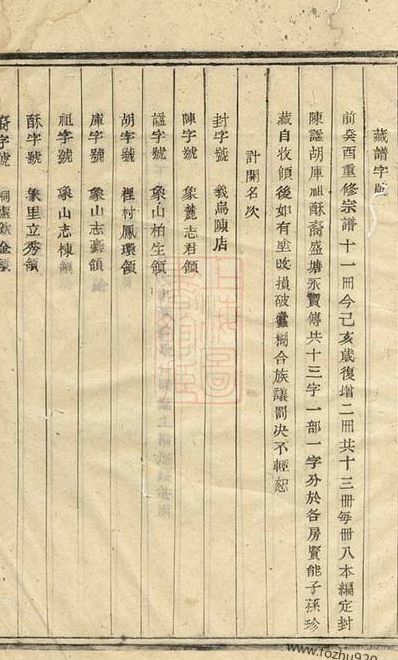 藏譜字號
前癸酉重修宗譜十一冊今己亥歲復增二冊共十三冊每冊八本編定封
陳諡胡庫祖酥裔盛塘永寶傳共十三字一部一字分於各房賢能子孫珍
藏自收領後如有塗改損破蠹糊合族議罰決不輕恕
計開名次
封字號 義烏陳店
陳字號 象麓志君領
諡字號 象山柏生領
胡字號 裡村鳳環領
庫字號 象山志藝領
祖字號 象山志棟領
酥字號 象里立秀領
裔字號
www.fozhu920